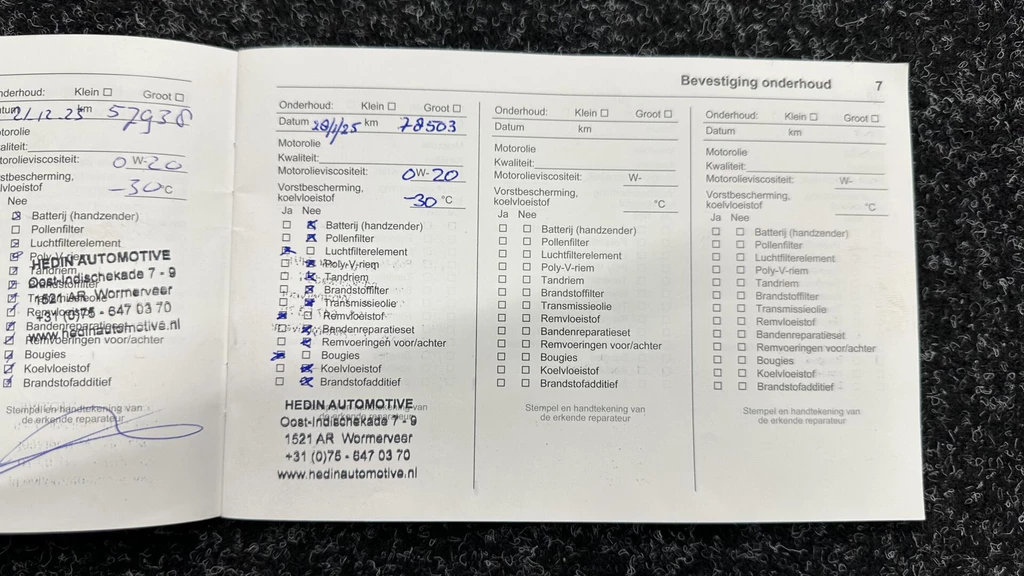 Bevestiging onderhoud 7
nderhoud: Klein Groot
21.12.23 km 57938
otorolie
aliteit:
otorolieviscositeit: 0W-20
stbescherming,
lvloeistof -30°C
Nee
Batterij (handzender)
Pollenfilter
Luchtfilterelement
Poly-V-riem
Tandriem
Brandstoffilter
Transmissieolie
Remvloeistof
Bandenreparatieset
Remvoeringen voor/achter
Bougies
Koelvloeistof
Brandstofadditief
HEDIN AUTOMOTIVE
Oost-Indischekade 7 - 9
1521 AR Wormerveer
+31 (0)75 - 647 03 70
www.hedinautomotive.nl
Stempel en handtekening van
de erkende reparateur
Onderhoud: Klein Groot
Datum km 78503
Motorolie
Kwaliteit:
Motorolieviscositeit: 0W-20
Vorstbescherming,
koelvloeistof -30 °C
Ja Nee
Batterij (handzender)
Pollenfilter
Luchtfilterelement
Poly-V-riem
Tandriem
Brandstoffilter
Transmissieolie
Remvloeistof
Bandenreparatieset
Remvoeringen voor/achter
Bougies
Koelvloeistof
Brandstofadditief
Stempel en handtekening van
de erkende reparateur
HEDIN AUTOMOTIVE
Oost-Indischekade 7 - 9
1521 AR Wormerveer
+31 (0)75 - 647 03 70
www.hedinautomotive.nl
Onderhoud: Klein Groot
Datum km
Motorolie
Kwaliteit:
Motorolieviscositeit: W-
Vorstbescherming,
koelvloeistof °C
Ja Nee
Batterij (handzender)
Pollenfilter
Luchtfilterelement
Poly-V-riem
Tandriem
Brandstoffilter
Transmissieolie
Remvloeistof
Bandenreparatieset
Remvoeringen voor/achter
Bougies
Koelvloeistof
Brandstofadditief
Stempel en handtekening van
de erkende reparateur
Onderhoud: Klein Groot
Datum km
Motorolie
Kwaliteit:
Motorolieviscositeit: W-
Vorstbescherming,
koelvloeistof °C
Ja Nee
Batterij (handzender)
Pollenfilter
Luchtfilterelement
Poly-V-riem
Tandriem
Brandstoffilter
Transmissieolie
Remvloeistof
Bandenreparatieset
Remvoeringen voor/achter
Bougies
Koelvloeistof
Brandstofadditief
Stempel en handtekening van
de erkende reparateur